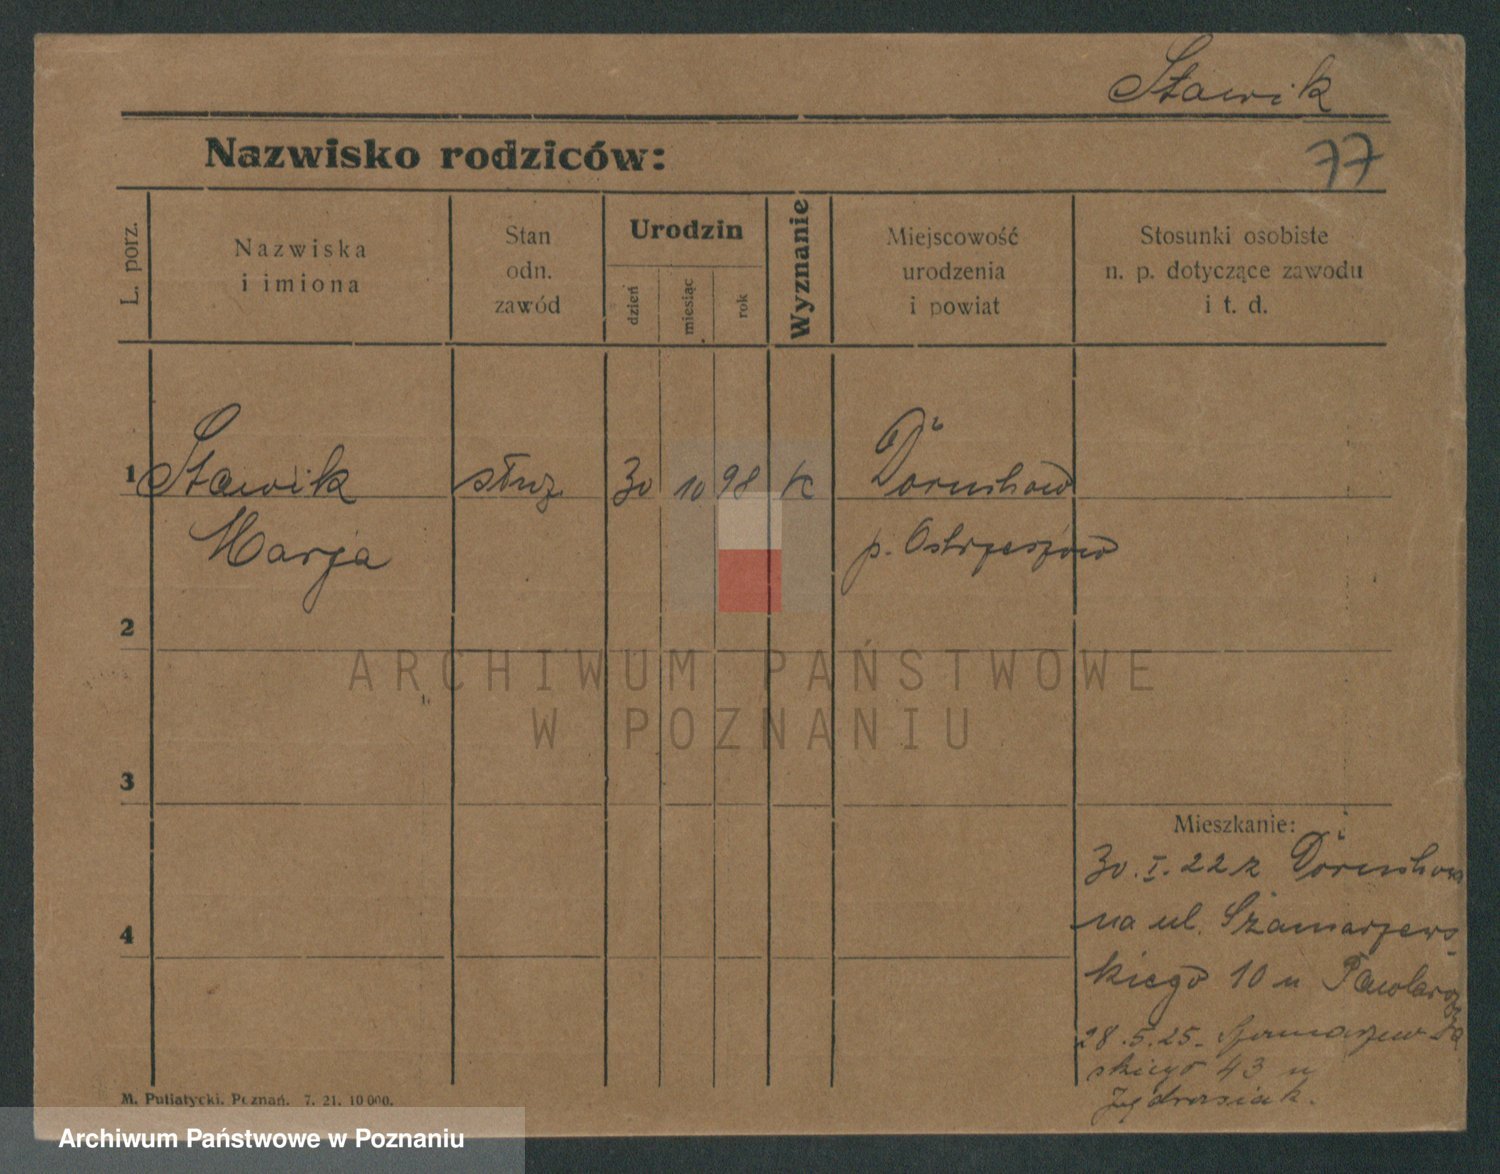 Stawik
Nazwisko rodziców:
77
L. porz.
Nazwiska
i imiona
Stan
odn.
zawód
Urodzin
dzień
miesiąc
rok
Wyznanie
Miejscowość
urodzenia
i powiat
Stosunki osobiste
n. p. dotyczące zawodu
i t. d.
1 Stawik służ. 30 10 98 K Doruchow
Marja p. Ostrzeszów
2
3
4
Mieszkanie:
30.I.22 z Doruchowa
na ul. Szamarzews-
kiego 10 u
28.5.25. Szamarzew-
skiego 43 u
Jędrasiak.
M. Putiatycki, Poznań. 7. 21. 10000.
ARCHIWUM PAŃSTWOWE
W POZNANIU
Archiwum Państwowe w Poznaniu